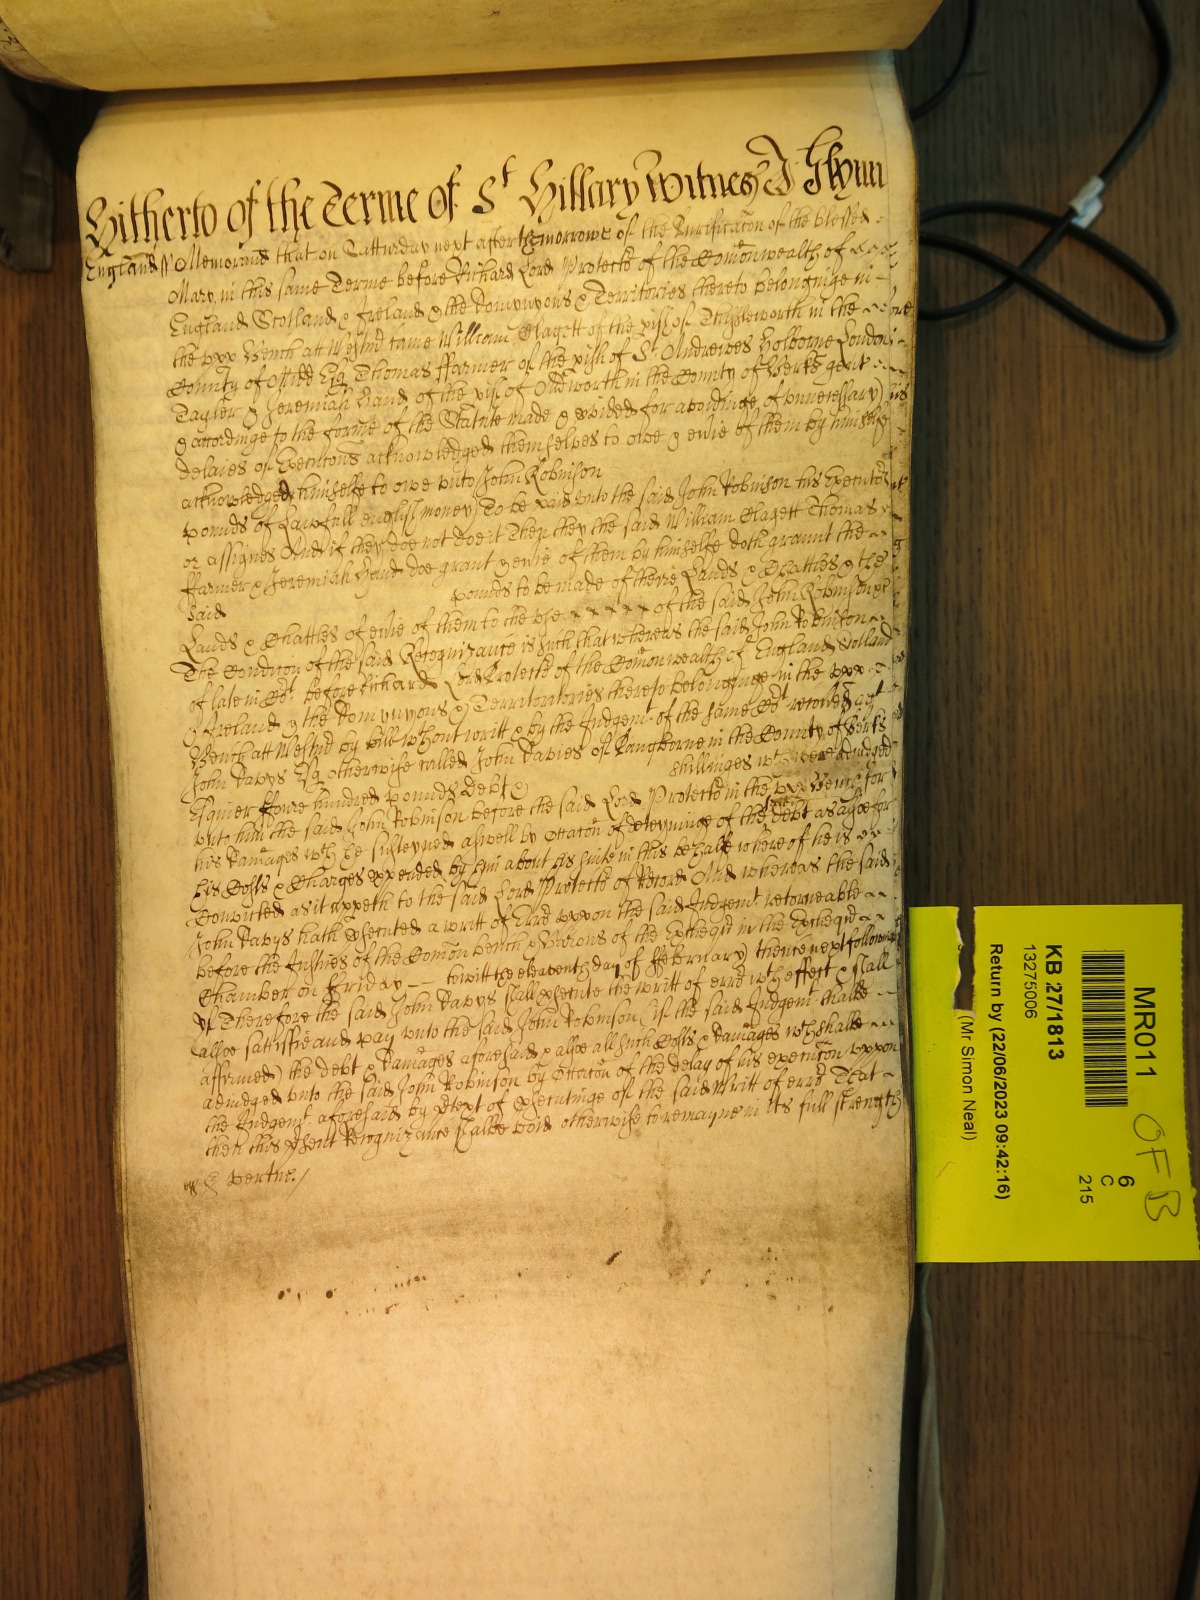 Hitherto of the Terme of St Hillary Witnes J Glynn
England ss Memorand that on Satturday next after the morrowe of the Purificacon of the blessed
Mary in this same Terme before Richard Lord Protector of the Comonwealth of
England Scotland & Ireland & the Dominyons & Territories thereto belonginge in
the upp Bench att Westmr came William Clagett of the pish of Thisleworth in the
County of Midd Esq Thomas ffarmer of the pish of St Andrewes Holborne London
Tayler & Jeremiah Hand of the pish of in the County of Berks gent
& accordinge to the forme of the Statute made & pvided for avoidinge of unnecessary
delaies of Execucons acknowledged themselves to owe & evie of them by himselfe
acknowledged himselfe to owe unto John Robinson
pounds of Lawfull english money To be paid unto the said John Robinson his Executors
or assignes And if they doe not doe it Then they the said William Clagett Thomas
ffarmer & Jeremiah Hand doe grant & evie of them by himselfe doth graunt the
said pounds to be made of theire Lands & Chattles & the
Lands & Chattles of evie of them to the use of the said John Robinson &c
The Condicon of the said Recognizance is such that whereas the said John Robinson
of late in Ct before Richard Lord Protector of the Comonwealth of England Scotland
& Ireland & the Dominyons & Territoritories thereto belonginge in the upp
Bench att Westmr by bill without writt & by the Judgemt of the same Ct recoved agt
John Davys Esq otherwise called John Davies of Pangborne in the County of Berks
Esquier ffoure hundred pounds Debt & shillinges wch were adiudged
unto him the said John Robinson before the said Lord Protector in the upp Bench for
his Damages wch he susteyned aswell by occacon of deteyninge of the debt as for
his Costs & Charges expended by him about his suite in this behalfe whereof he is
Convicted as it appeth to the said Lord Protector of Record And whereas the said
John Davys hath psecuted a writt of Error uppon the said Judgemt retorneable
before the Justices of the Comon bench & Barons of the Excheqr in the Excheqr
Chamber on Friday towitt the eleaventh day of ffebruary thence next followinge
If Therefore the said John Davys shall psecute the writt of error wth effect & shall
alsoe sattisfie and pay unto the said John Robinson (if the said Judgemt shalbe
affirmed) the debt & Damages aforesaid & alsoe all such Costs & Damages wch shalbe
adiudged unto the said John Robinson by occacon of the delay of his execucon uppon
the Judgemt aforesaid by ptext of psecutinge of the said writt of error That
then this psent Recognizance shalbe void otherwise to remayne in its full strength
& vertue /
MR011
6
C
215
OFB
KB 27/1813
13275006
Return by (22/06/2023 09:42:16)
(Mr Simon Neal)